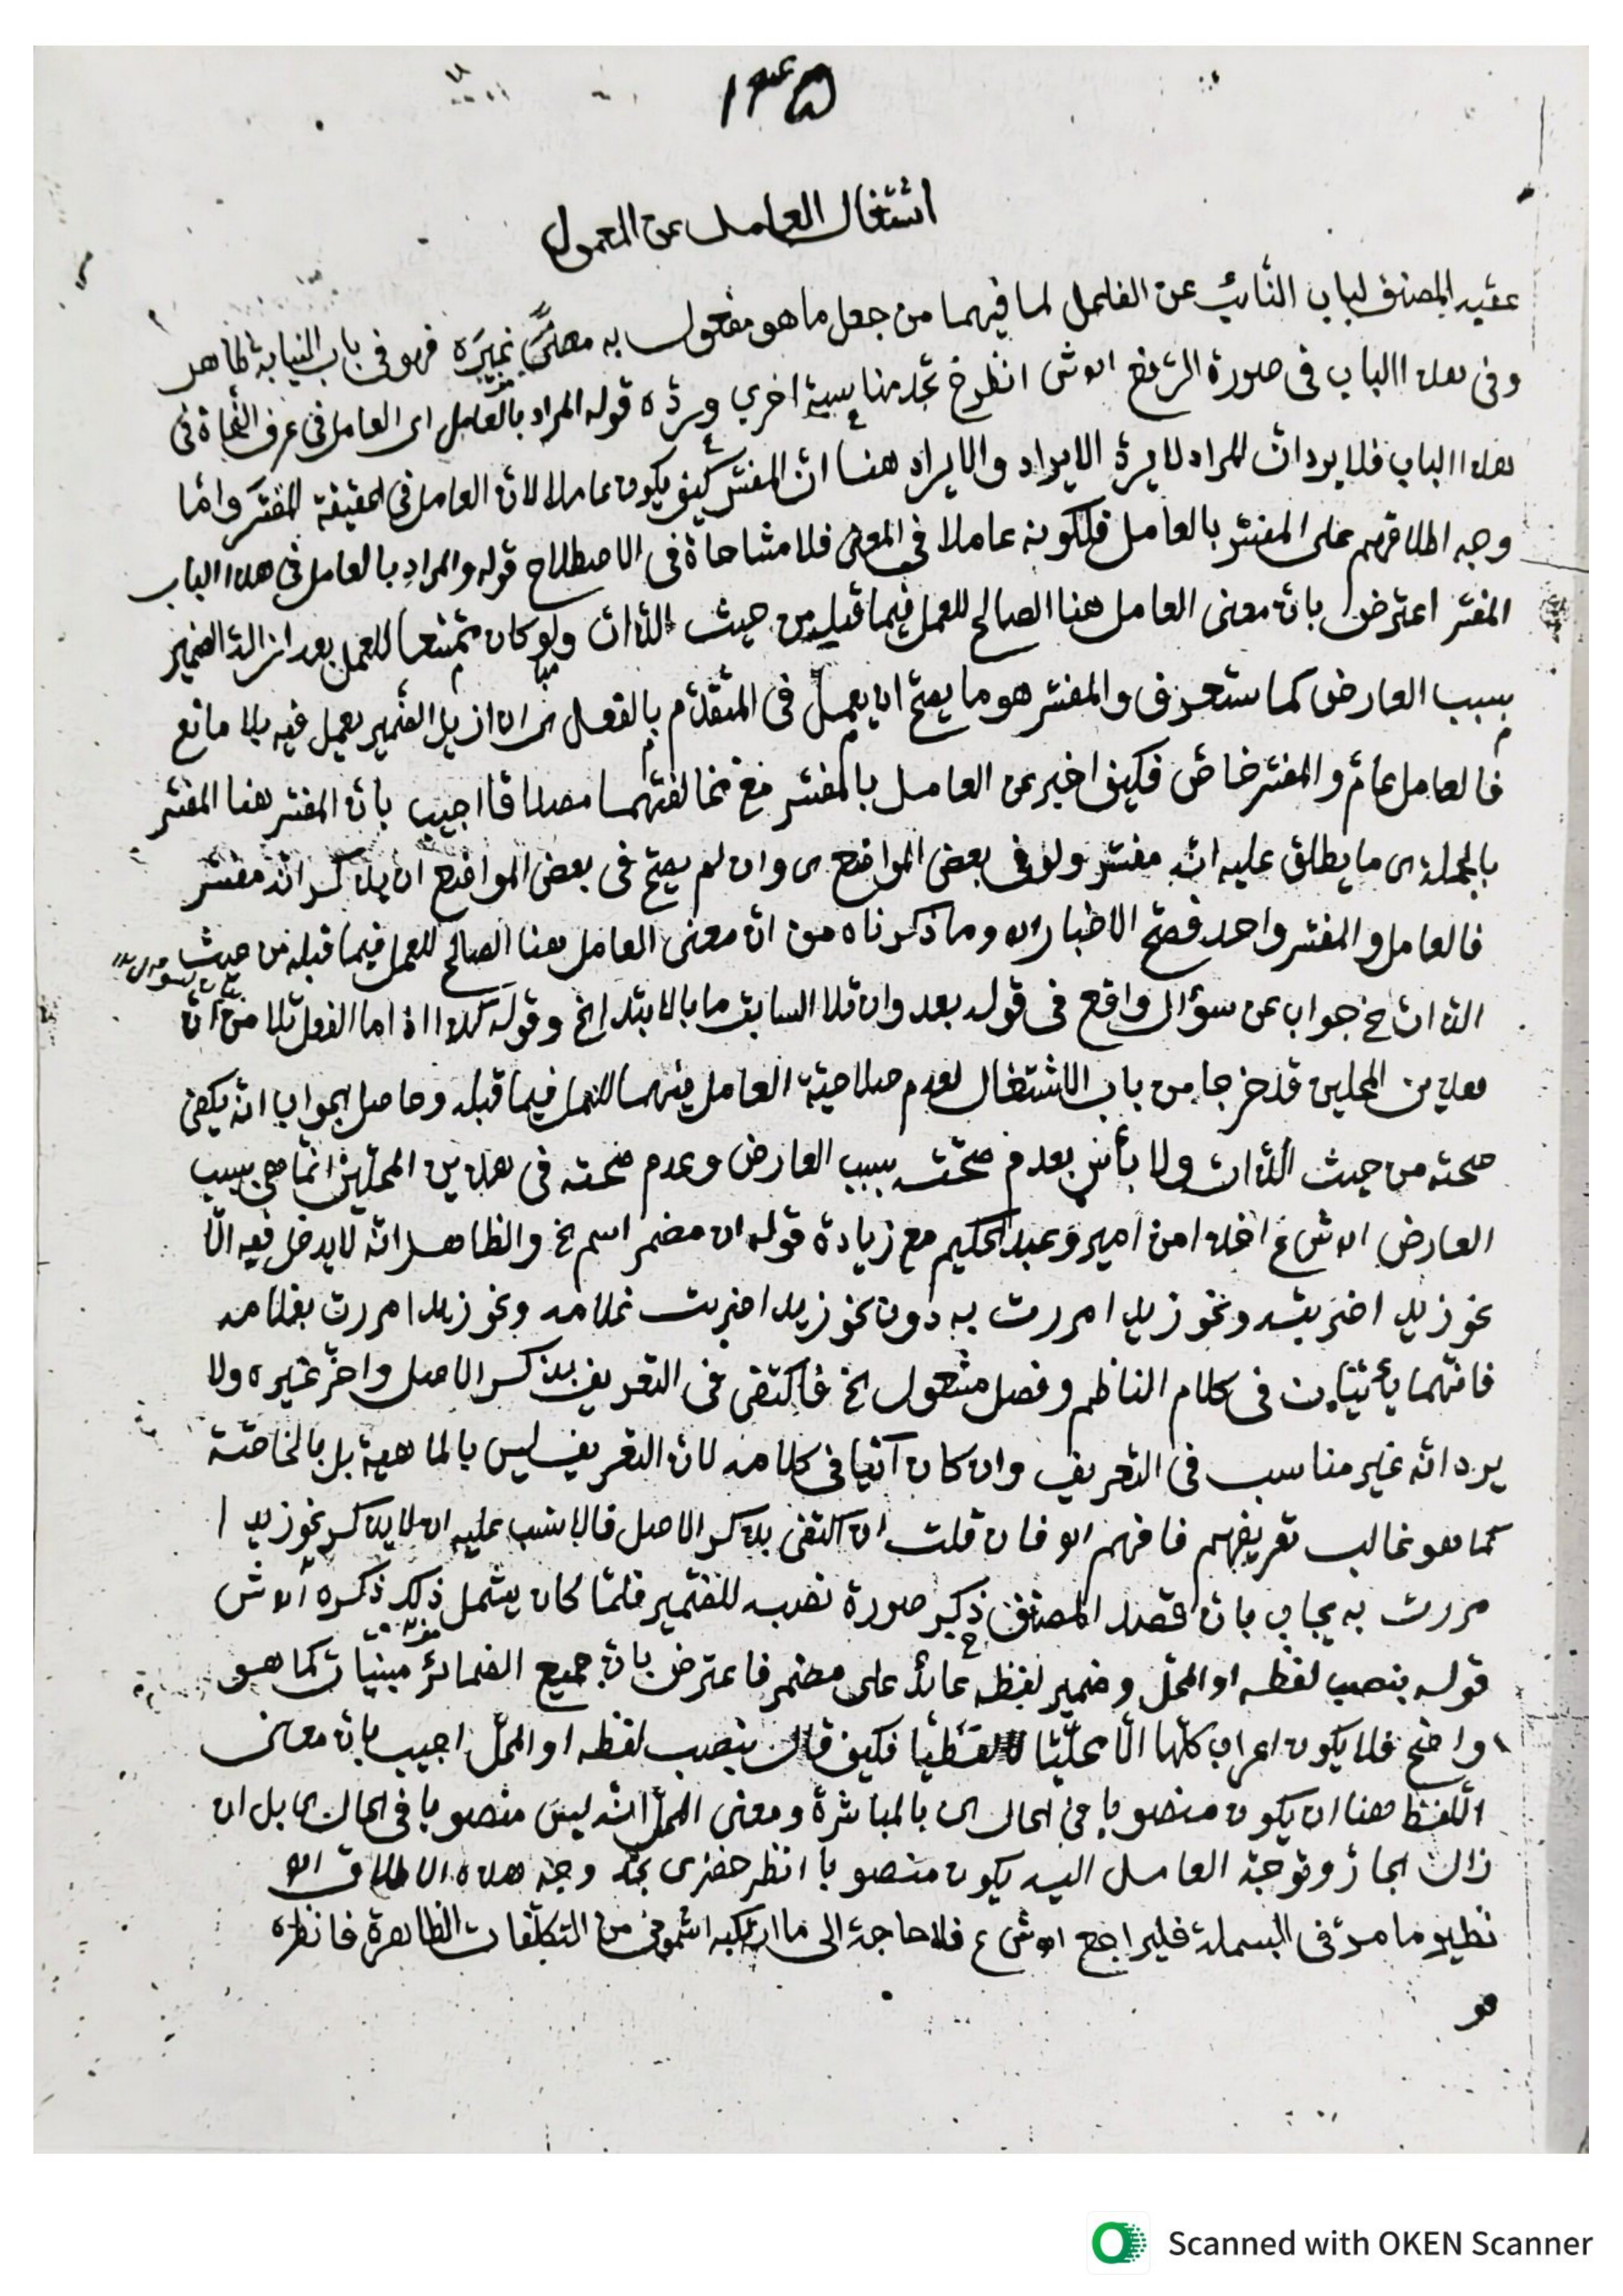 ١٣٥
اشتغال العامل عن المعمول
عقيد المصنف لباب النائب عن الفاعل لما فيهما من جعل ما هو مفعول به معنًى غيره فهو في باب النيابة ظاهر
وفي هذا الباب في صورة الرفع اه ش انظر خ تجد مناسبة اخري قوله المراد بالعامل اى العامل في عرف النحاة في
هذا الباب فلا يرد ان المراد لا يرد الايراد والايراد هنا ان المفسّر كيف يكون عاملا لان العامل في الحقيقة المفسَّر وامّا
وجه اطلاقهم على المفسّر بالعامل فلكونه عاملا في المعنى فلا مشاحاة في الاصطلاح قوله والمراد بالعامل في هذا الباب
المفسّر اعترض بان معنى العامل هنا الصالح للعمل فيما قبله من حيث الذات ولو كان ممتنعا للعمل بعد ازالة الضمير
بسبب العارض كما ستعرف والمفسر هو ما يصحّ ان يعمل في المتقدّم بالفعل اى ان ازيل الضمير يعمل فيه بلا مانع
فالعامل عامّ والمفسّر خاصّ فكيف اخبر عن العامل بالمفسّر مع مخالفتهما مصداقا اجيب بان المفسّر هنا المفسّر
بالجملة اى ما يطلق عليه انه مفسّر ولو في بعض المواضع اى وان لم يصحّ في بعض المواضع ان يذكر انه مفسّر
فالعامل والمفسر واحد فصحّ الاخبار اه وما ذكرناه من انّ معنى العامل هنا الصالح للعمل فيما قبله من حيث
الذات خ جواب عن سؤال واقع في قوله بعد وان تلا السابق ما بالابتدا الخ وقوله كذا اذا ما الفعل تلا من انّ
هذين المحلين قد خرجا من باب الاشتغال لعدم صلاحيّة العامل فيهما للعمل فيما قبله وحاصل الجواب انّه يكفى
صحته من حيث الذات ولا بأس بعدم صحّته بسبب العارض وعدم صحته في هذين المحلّين انّما هى بسبب
العارض اه ش ع اخذا من امير وعبد الحكيم مع زيادة قوله ان مضمر اسم خ والظاهر انّه لا يدخل فيه الّا
نحو زيدا ضربته ونحو زيدا مررت به دون نحو زيدا ضربت غلامه ونحو زيدا مررت بغلامه
فانّهما يأتيان في كلام الناظم وفصل مشغول الخ فاكتفى في التعريف بذكر الاصل واخّر غيره ولا
يرد انّه غير مناسب في التعريف وان كان آتيا في كلامه لان التعريف ليس بالماهية بل بالخاصّة
كما هو غالب تعريفهم فافهم اه فان قلت ان اكتفى بذكر الاصل فالانسب عليه ان لا يذكر نحو زيدا
مررت به يجاب بان قصد المصنف ذكر صورة نصبه للضمير فلمّا كان يشمل ذلك ذكره اه ش
قوله بنصب لفظه او المحلّ وضمير لفظه عائد على مضمر فاعترض بان جميع الضمائر مبنيات كما هو
واضح فلا يكون اعراب كلّها الّا محلّيّا لا لفظيّا فكيف قال بنصب لفظه او المحلّ اجيب بانّ معنى
اللّفظ هنا ان يكون منصوبا في الحال اى بالمباشرة ومعنى المحلّ انّه ليس منصوبا في الحال بل ان
زال الجارّ وتوجّه العامل اليه يكون منصوبا انظر خضرى تجد وجه هذه الاطلاق اه
نظير ما مرّ في البسملة فليراجع اه ش ع فلا حاجة الى ما ارتكبه اشموني من التكلّفات الظاهرة فانظره
Scanned with OKEN Scanner